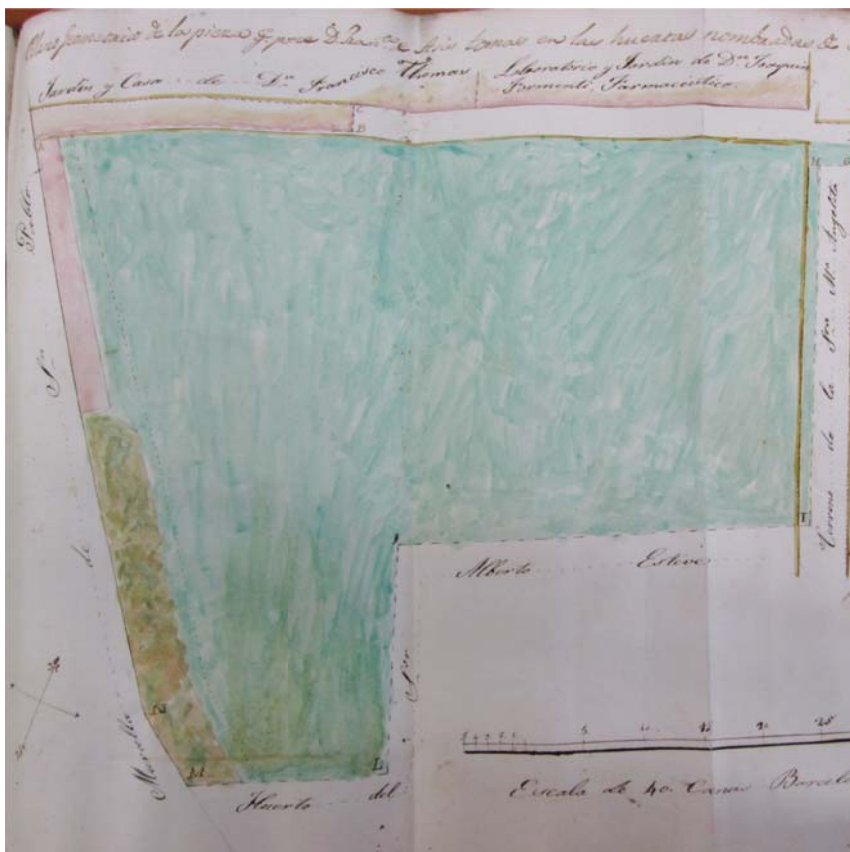 Plano de la pieza q. pose Dn. en las huertas nombradas de
Jardin y Casa de Dn. Francisco Thomas
Laboratorio y Jardin de Dn. Joaquin
Fromenti, Farmaceutico.
Muralla de Sn. Pablo
C
B
T
Terreno de la Sra. Ma. Angelita
Alberto Esteve
N
M
L
Huerto del Sor.
5 10 15 20 25
Escala de 40 Canas Barcelo